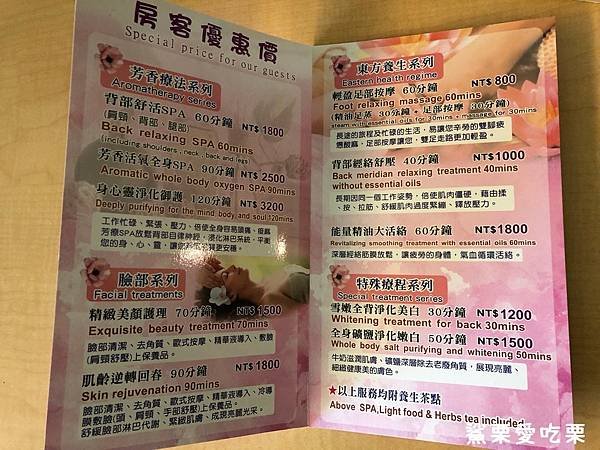 房客優惠價
Special price for our guests
芳香療法系列
Aromatherapy series
背部舒活SPA 60分鐘 NT$ 1800
(肩頸、背部、腿部)
Back relaxing SPA 60mins
(including shoulders, neck, back and legs)
芳香活氧全身SPA 90分鐘 NT$ 2500
Aromatic whole body oxygen SPA 90mins
身心靈淨化御護 120分鐘 NT$ 3200
Deeply purifying for the mind body and soul 120mins
工作忙碌、緊張、壓力、倍使全身容易頭痛、痠麻
芳療SPA放鬆背部自律神經,淨化淋巴系統,平衡
您的身、心、靈,讓您
臉部系列
Facial treatments
精緻美顏護理 70分鐘 NT$ 1500
Exquisite beauty treatment 70mins
臉部清潔、去角質、歐式按摩、精華液導入、敷臉
(肩頸舒壓)上保養品。
肌齡逆轉回春 90分鐘 NT$ 1800
Skin rejuvenation 90mins
臉部清潔、去角質、歐式按摩、精華液導入、冷導
膜敷臉(頭、肩頸、手部舒壓)上保養品。
舒緩臉部淋巴代謝、緊緻肌膚、成現亮麗光采。
東方養生系列
Eastern health regime
輕盈足部按摩 60分鐘 NT$ 800
Foot relaxing massage 60mins
(精油足蒸 30分鐘 + 足部按摩 30分鐘)
steam with essential oils for 30mins + massage for 30mins
長途的旅程及忙碌的生活,易讓您辛勞的雙腳疲
憊酸麻,足部按摩讓您,雙足走路更加輕盈。
背部經絡舒壓 40分鐘 NT$1000
Back meridian relaxing treatment 40mins
without essential oils
長期因同一個工作姿勢,倍使肌肉僵硬,藉由揉
、按、拉筋、舒緩肌肉過度緊繃、釋放壓力。
能量精油大活絡 60分鐘 NT$1800
Revitalizing smoothing treatment with essential oils 60mins
深層經絡筋膜放鬆,讓疲勞的身體,氣血循環活絡。
特殊療程系列
Special treatment series
雪嫩全背淨化美白 30分鐘 NT$1200
Whitening treatment for back 30mins
全身礦鹽淨化嫩白 50分鐘 NT$1500
Whole body salt purifying and whitening 50mins
牛奶滋潤肌膚、礦鹽深層除去老廢角質,展現亮麗、
細緻健康美的膚色。
★以上服務均附養生茶點
Above SPA,Light food & Herbs tea included
鯊栗愛吃栗